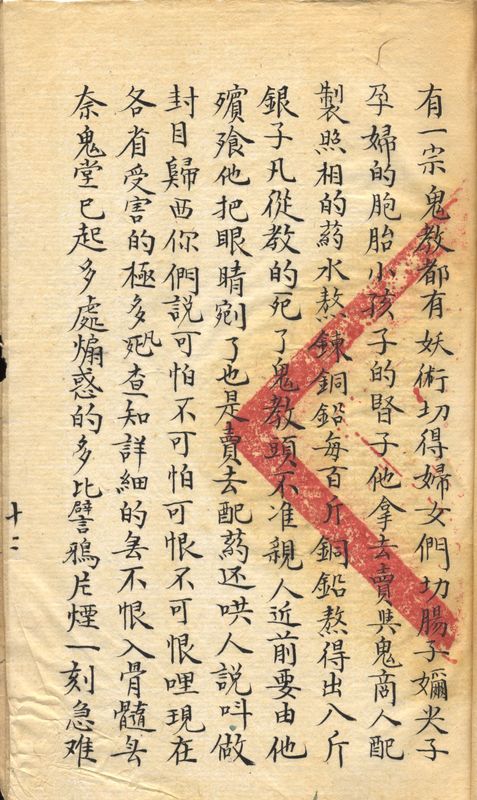 有一宗鬼教都有妖術切得婦女們切腸子嬭尖子
孕婦的胞胎小孩子的腎子他拿去賣與鬼商人配
製照相的葯水熬鍊銅鉛每百斤銅鉛熬得出八斤
銀子凡從教的死了鬼教頭不准親人近前要由他
殯飱他把眼睛剜了也是賣去配葯还哄人説呌做
封目歸西你們説可怕不可怕可恨不可恨哩現在
各省受害的極多凡查知詳細的無不恨入骨髓無
奈鬼堂已起多處煽惑的多比譬鴉片煙一刻急难
十二